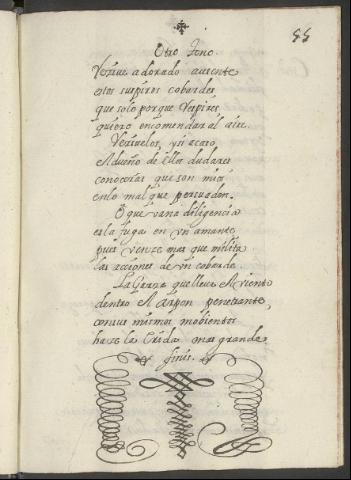 55
Otro Tono.
adorado ausente
estos suspiros cobardes
que solo porque respires
quiero encomendar al aire.
y si acaso
el dueño de ellos dudares
conoceras que son mios
en lo mal que persuaden.
O que vana diligencia
es la fuga en vn amante
pues venze mas que milita
las acciones de vn cobarde
La Garza que lleva el viento
dentro el Arpon penetrante,
con sus mismos mobientos
haze la erida mas grande
finis.